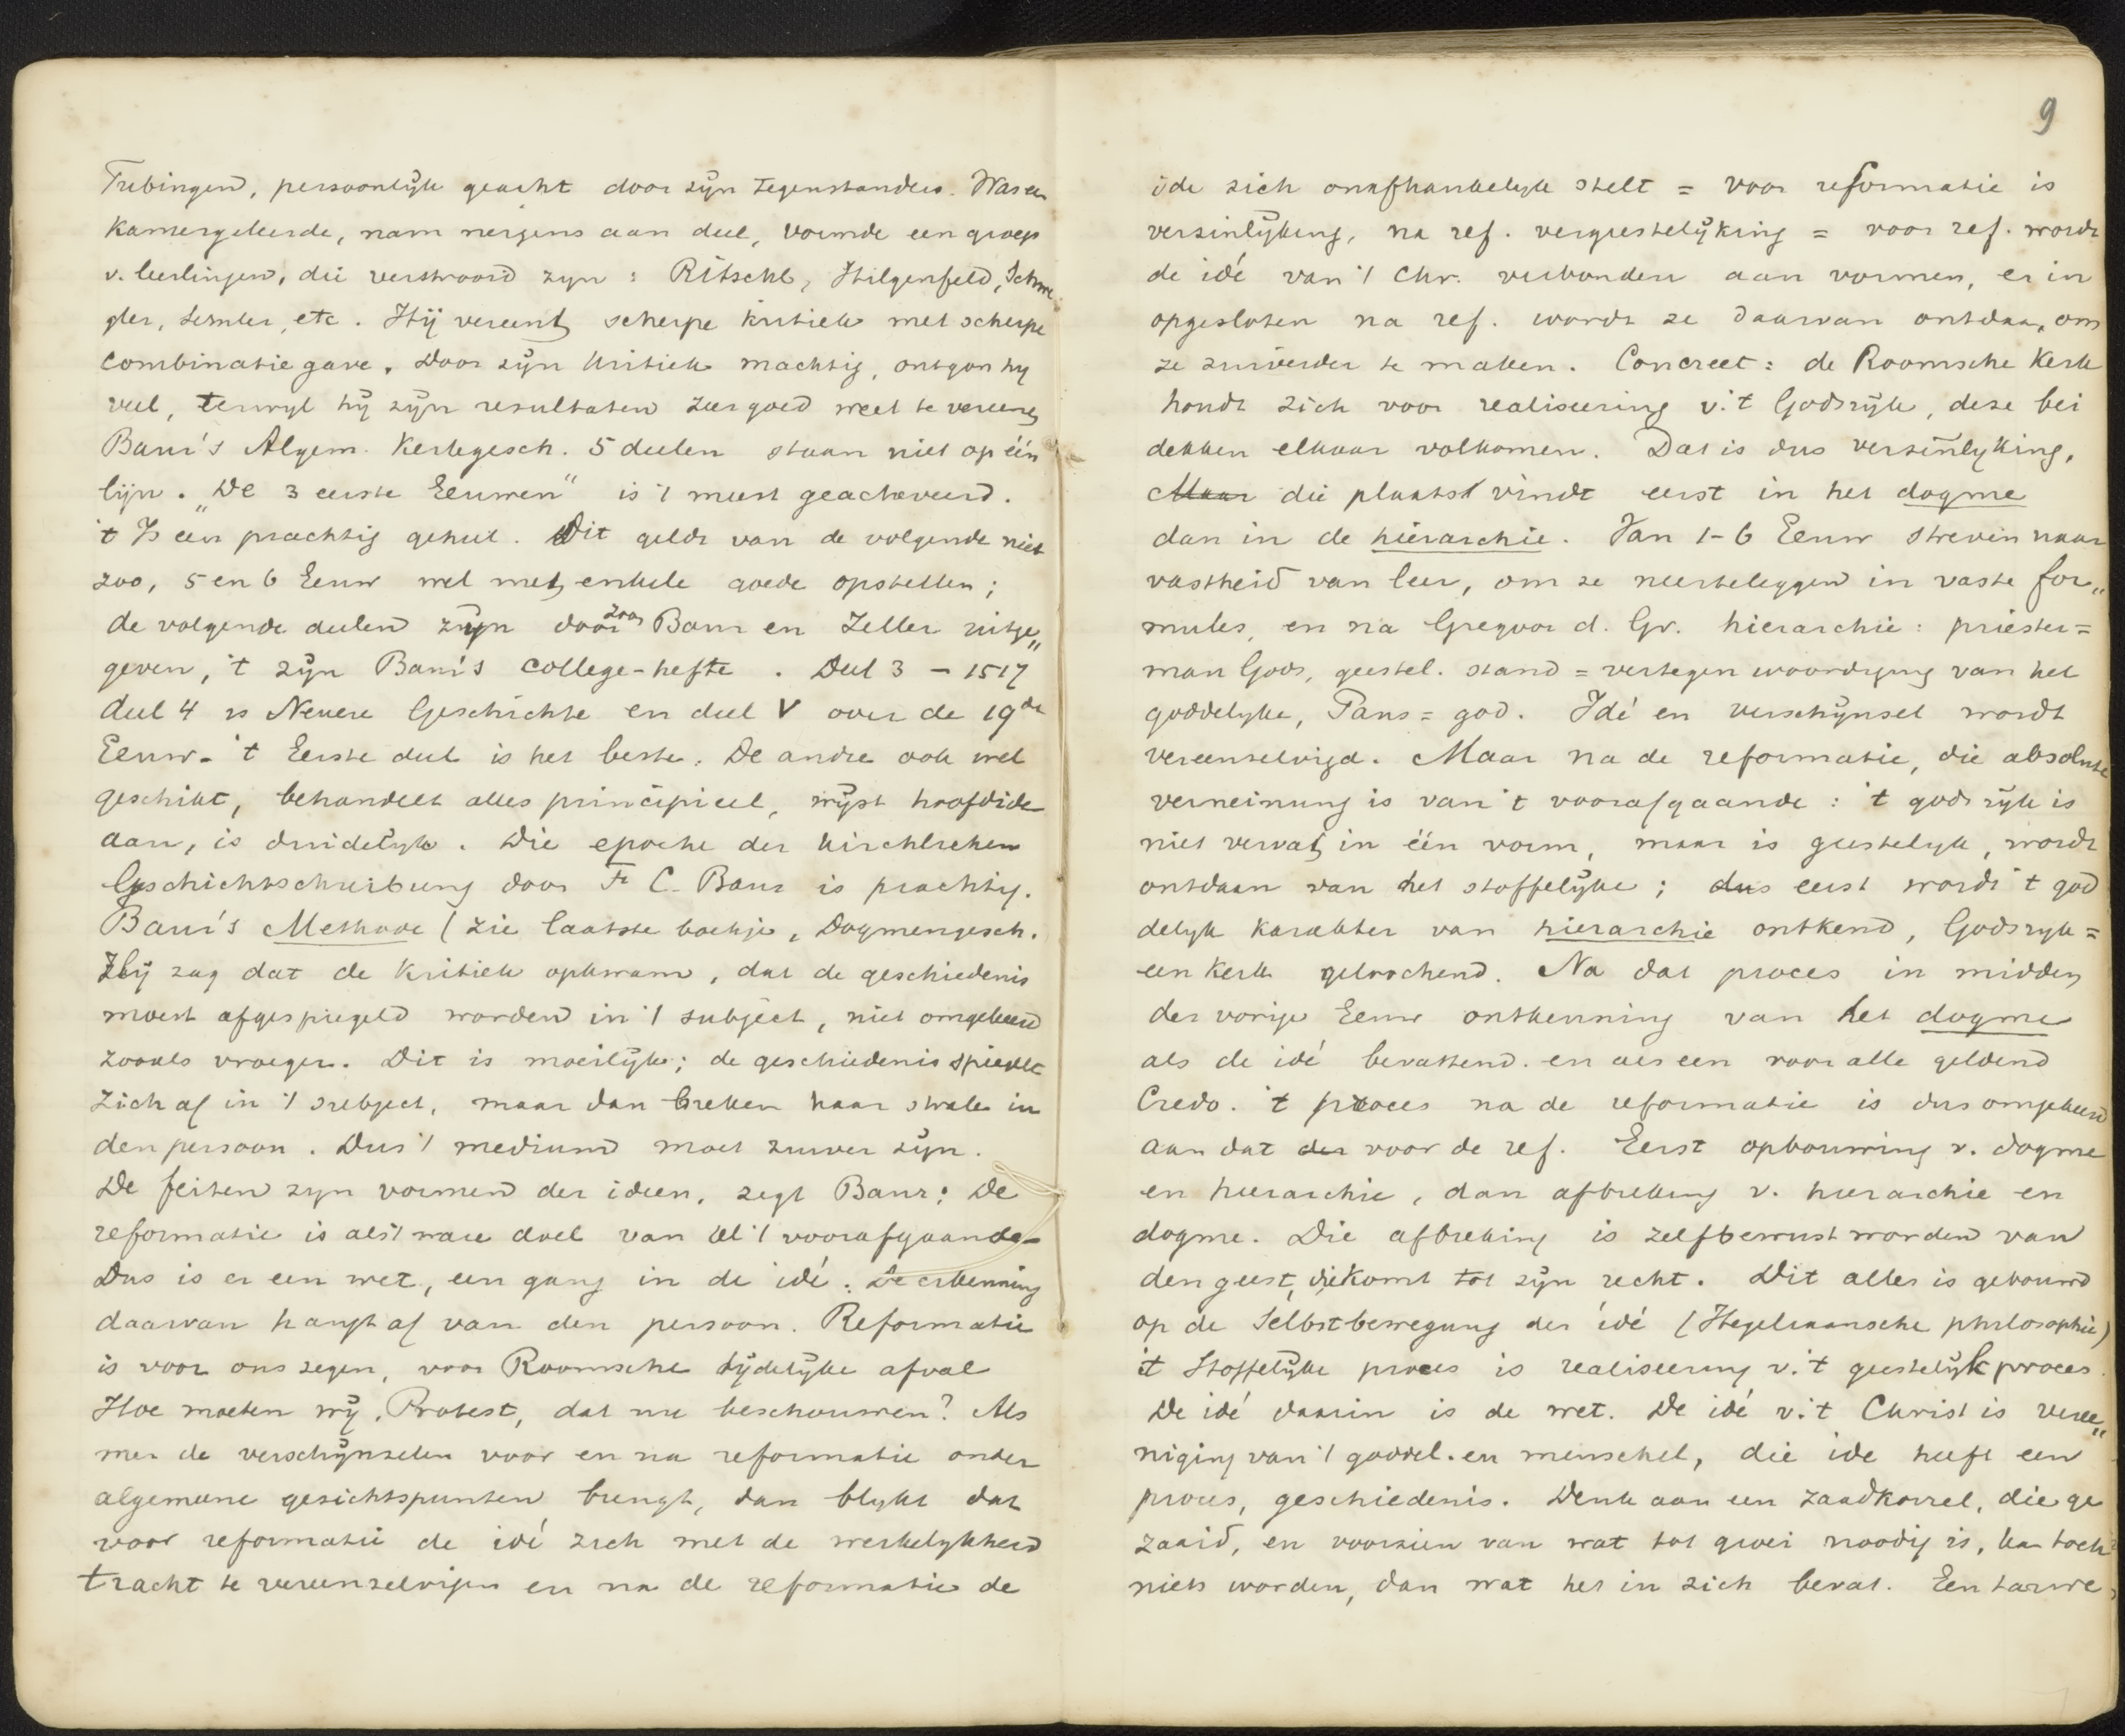 Tubingen, persoonlijk geacht door zijn tegenstanders. Was een
kamergeleerde, nam nergens aan deel, vormde een groep
v. leerlingen, die verstrooid zyn: Ritschl, Hilgenfeld, Schwe
gler, etc. Hij vereent scherpe kritiek met scherpe
combinatie gave. Door zijn kritiek machtig, ontgon hy
veel, terwyl hij zijn resultaten zeer goed weet te vereenen
Baur's Algem. Kerkgesch. 5 deelen staan niet op één
lijn. „De 3 eerste Eeuwen" is 't meest geacheveerd.
't Is een prachtig geheel. Dit geldt van de volgende niet
zoo, 5 en 6 Eeuw wel met enkele goede opstellen;
de volgende deelen zijn door zoon Baur en Zeller uitge„
geven, 't zijn Baur's college-hefte. Deel 3 – 1517
deel 4 is Neuere Geschichte en deel V over de 19de
Eeuw. 't Eerste deel is het beste. De andre ook wel
geschikt, behandelt alles principieel, wijst hoofdide
aan, is duidelijk. Die epoche der kirchlichen
Geschichtschreibung door F. C. Baur is prachtig.
Baur's Methode (zie laatste boekje, Dogmengesch.
Hij zag dat de kritiek opkwam, dat de geschiedenis
moest afgespiegeld worden in 't subject, niet omgekeerd
zooals vroeger. Dit is moeilijk; de geschiedenis spiegelt
zich af in 't subject, maar dan breken haar strale in
den persoon. Dus 't medium moet zuiver zijn.
De feiten zyn vormen der ideen, zegt Baur: De
reformatie is als 't ware doel van al 't voorafgaande
Dus is er een wet, een gang in de idé. De erkenning
daarvan hangt af van den persoon. Reformatie
is voor ons zegen, voor Roomsche tijdelijke afval
Hoe moeten wij, Protest, dat nu beschouwen? Als
men de verschijnselen voor en na reformatie onder
algemeene gesichtspunten brengt, dan blykt dat
voor reformatie de idé zich met de werkelykheid
tracht te vereenzelvigen en na de reformatie de
9
ide zich onafhankelyk stelt = voor reformatie is
verzinlijking, na ref. vergeestelijking = voor ref. wordt
de idé van 't Chr. verbonden aan vormen, er in
opgesloten na ref. wordt ze daarvan ontdaan, om
ze zuiverder te maken. Concreet: de Roomsche Kerk
houdt zich voor realiseering v. 't Godsrijk, deze bei
dekken elkaar volkomen. Dat is dus verzinlyking,
Maar die plaatst vindt eerst in het dogme
dan in de hiërarchie. Van 1-6 Eeuw streven naar
vastheid van leer, om ze neerteleggen in vaste for„
mules, en na Gregoor d. Gr. hierarchie: priester =
man Gods, geestel. stand = vertegenwoordiging van het
goddelyke, Paus = god. Idé en verschijnsel wordt
vereenzelvigd. Maar na de reformatie, die absolute
verneinung is van 't voorafgaande: 't godsrijk is
niet vervat in één vorm, maar is geestelyk, wordt
ontdaan van het stoffelijke; dus eerst wordt 't god
delyk karakter van hierarchie ontkend, Godsryk =
een kerk gelochend. Na dat proces in midden
der vorige Eeuw ontkenning van het dogme
als de idé bevattend. en als een voor alle geldend
Credo. 't proces na de reformatie is dus omgekeerd
aan dat der voor de ref. Eerst opbouwing v. dogme
en hierarchie, dan afbreking v. hierarchie en
dogme. Die afbreking is zelfbewust worden van
den geest, die komt tot zijn recht. Dit alles is gebouwd
op de Selbstbewegung der idé (Hegeliaansche philosophie)
't Stoffelijke proces is realiseering v. 't geestelijk proces.
De idé daarin is de wet. De idé v. 't Christ is veree„
niging van 't goddel. en menschel, die ide heeft een
proces, geschiedenis. Denk aan een zaadkorrel, die ge
zaaid, en voorzien van wat tot groei noodig is, kan toch
niets worden, dan wat het in zich bevat. Een tarwe